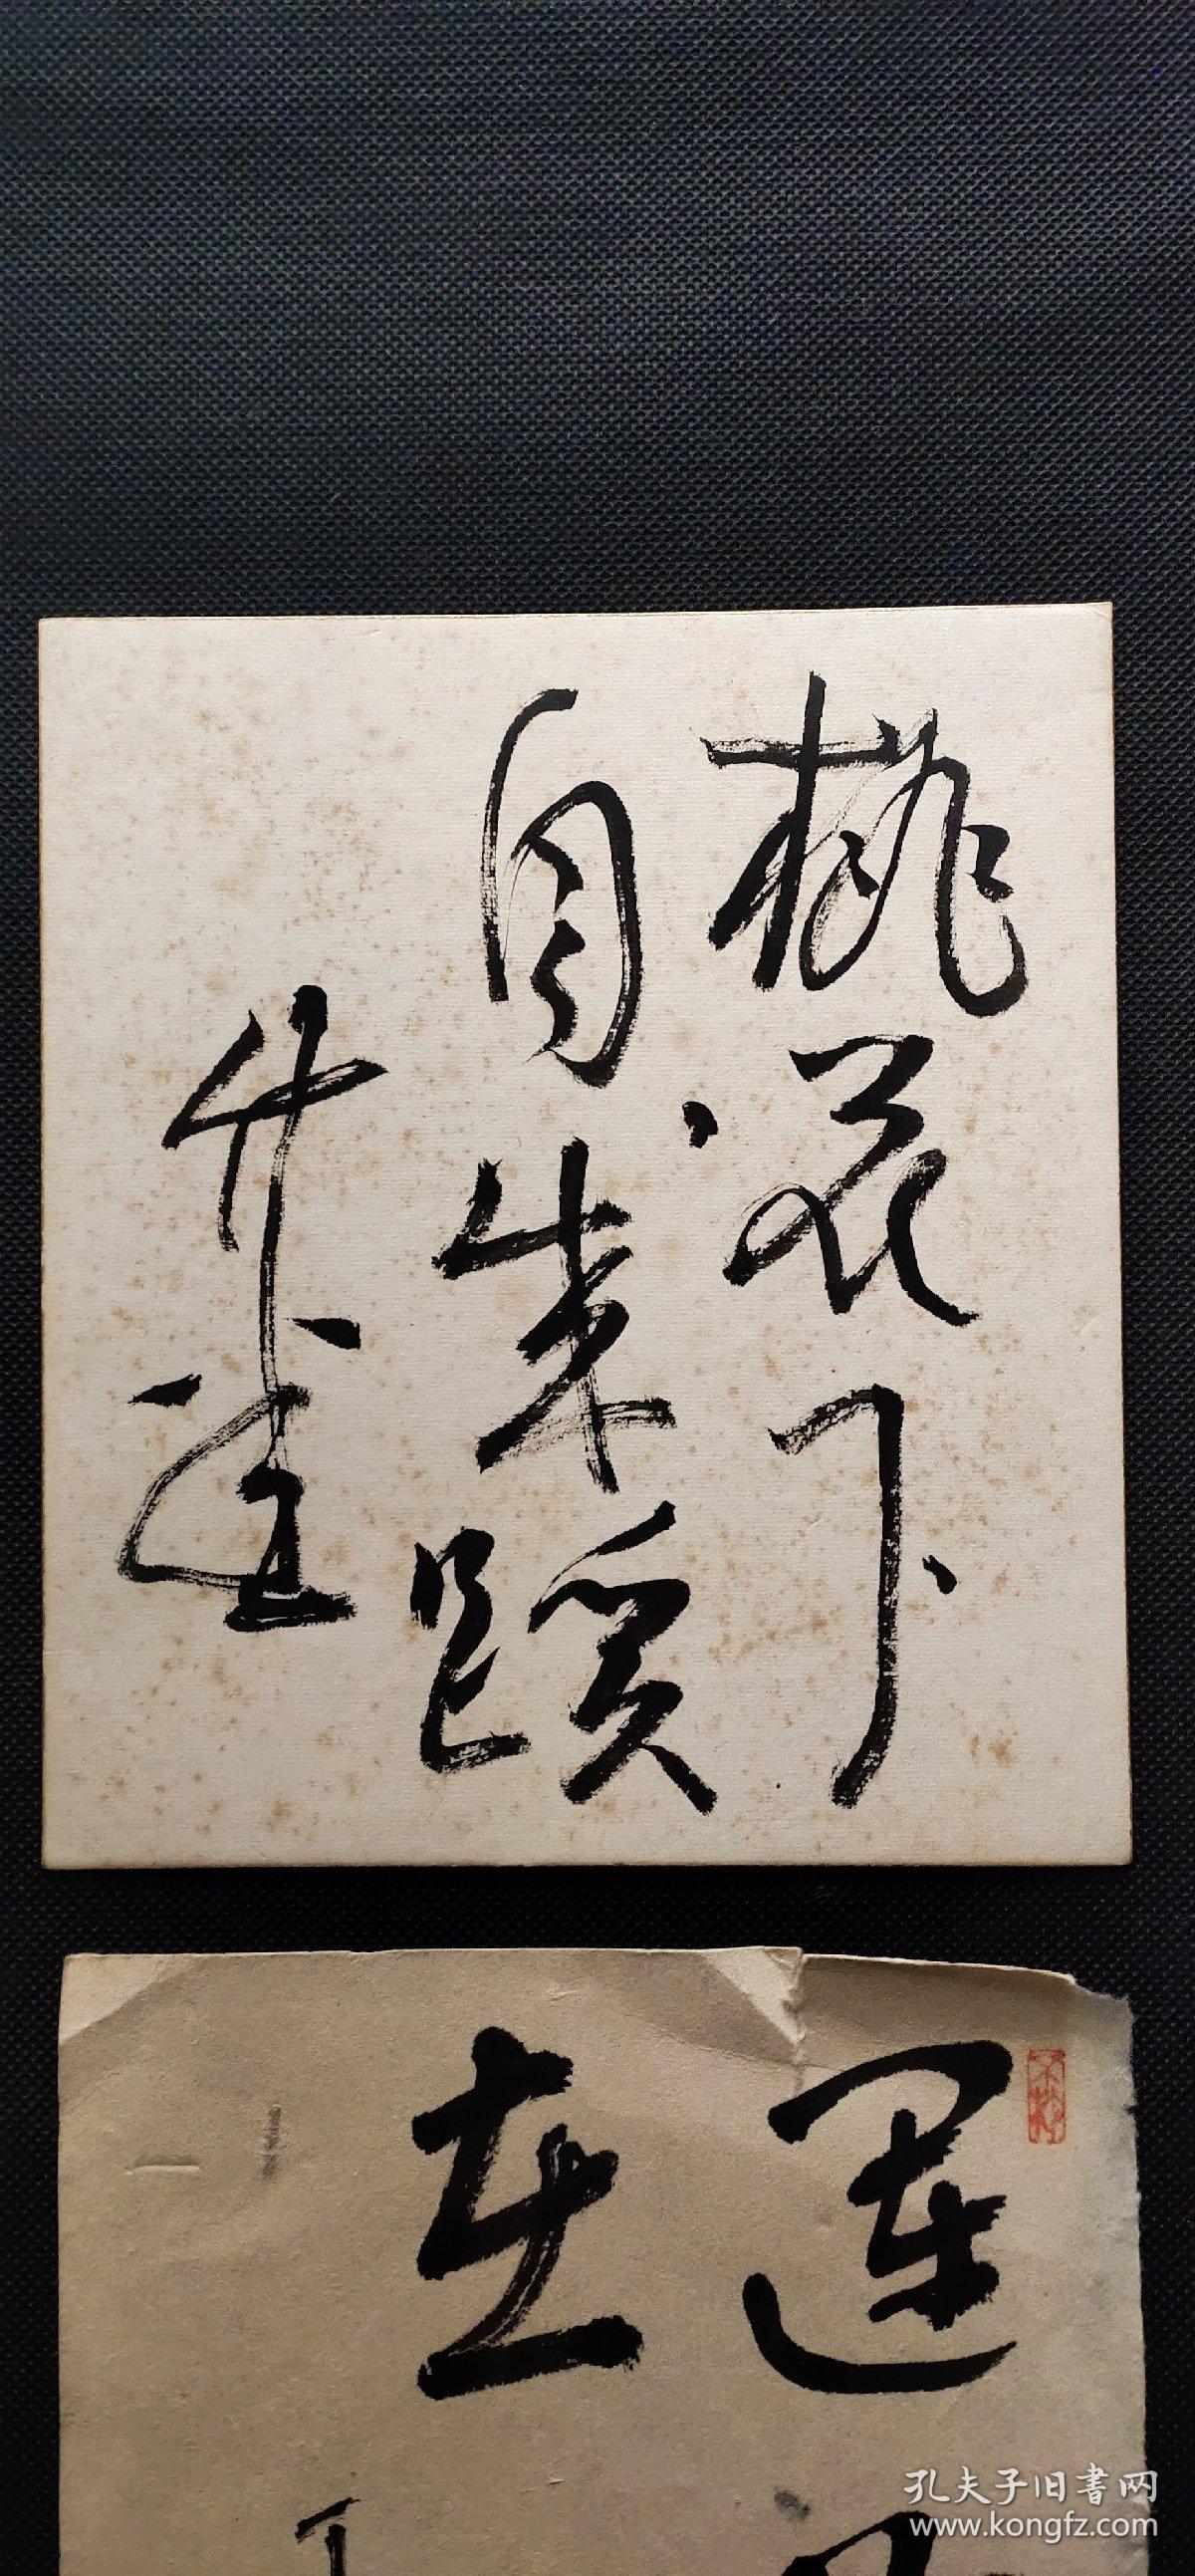 桃花下
自成蹊
竹堂
運
在
孔夫子旧書网
www.kongfz.com